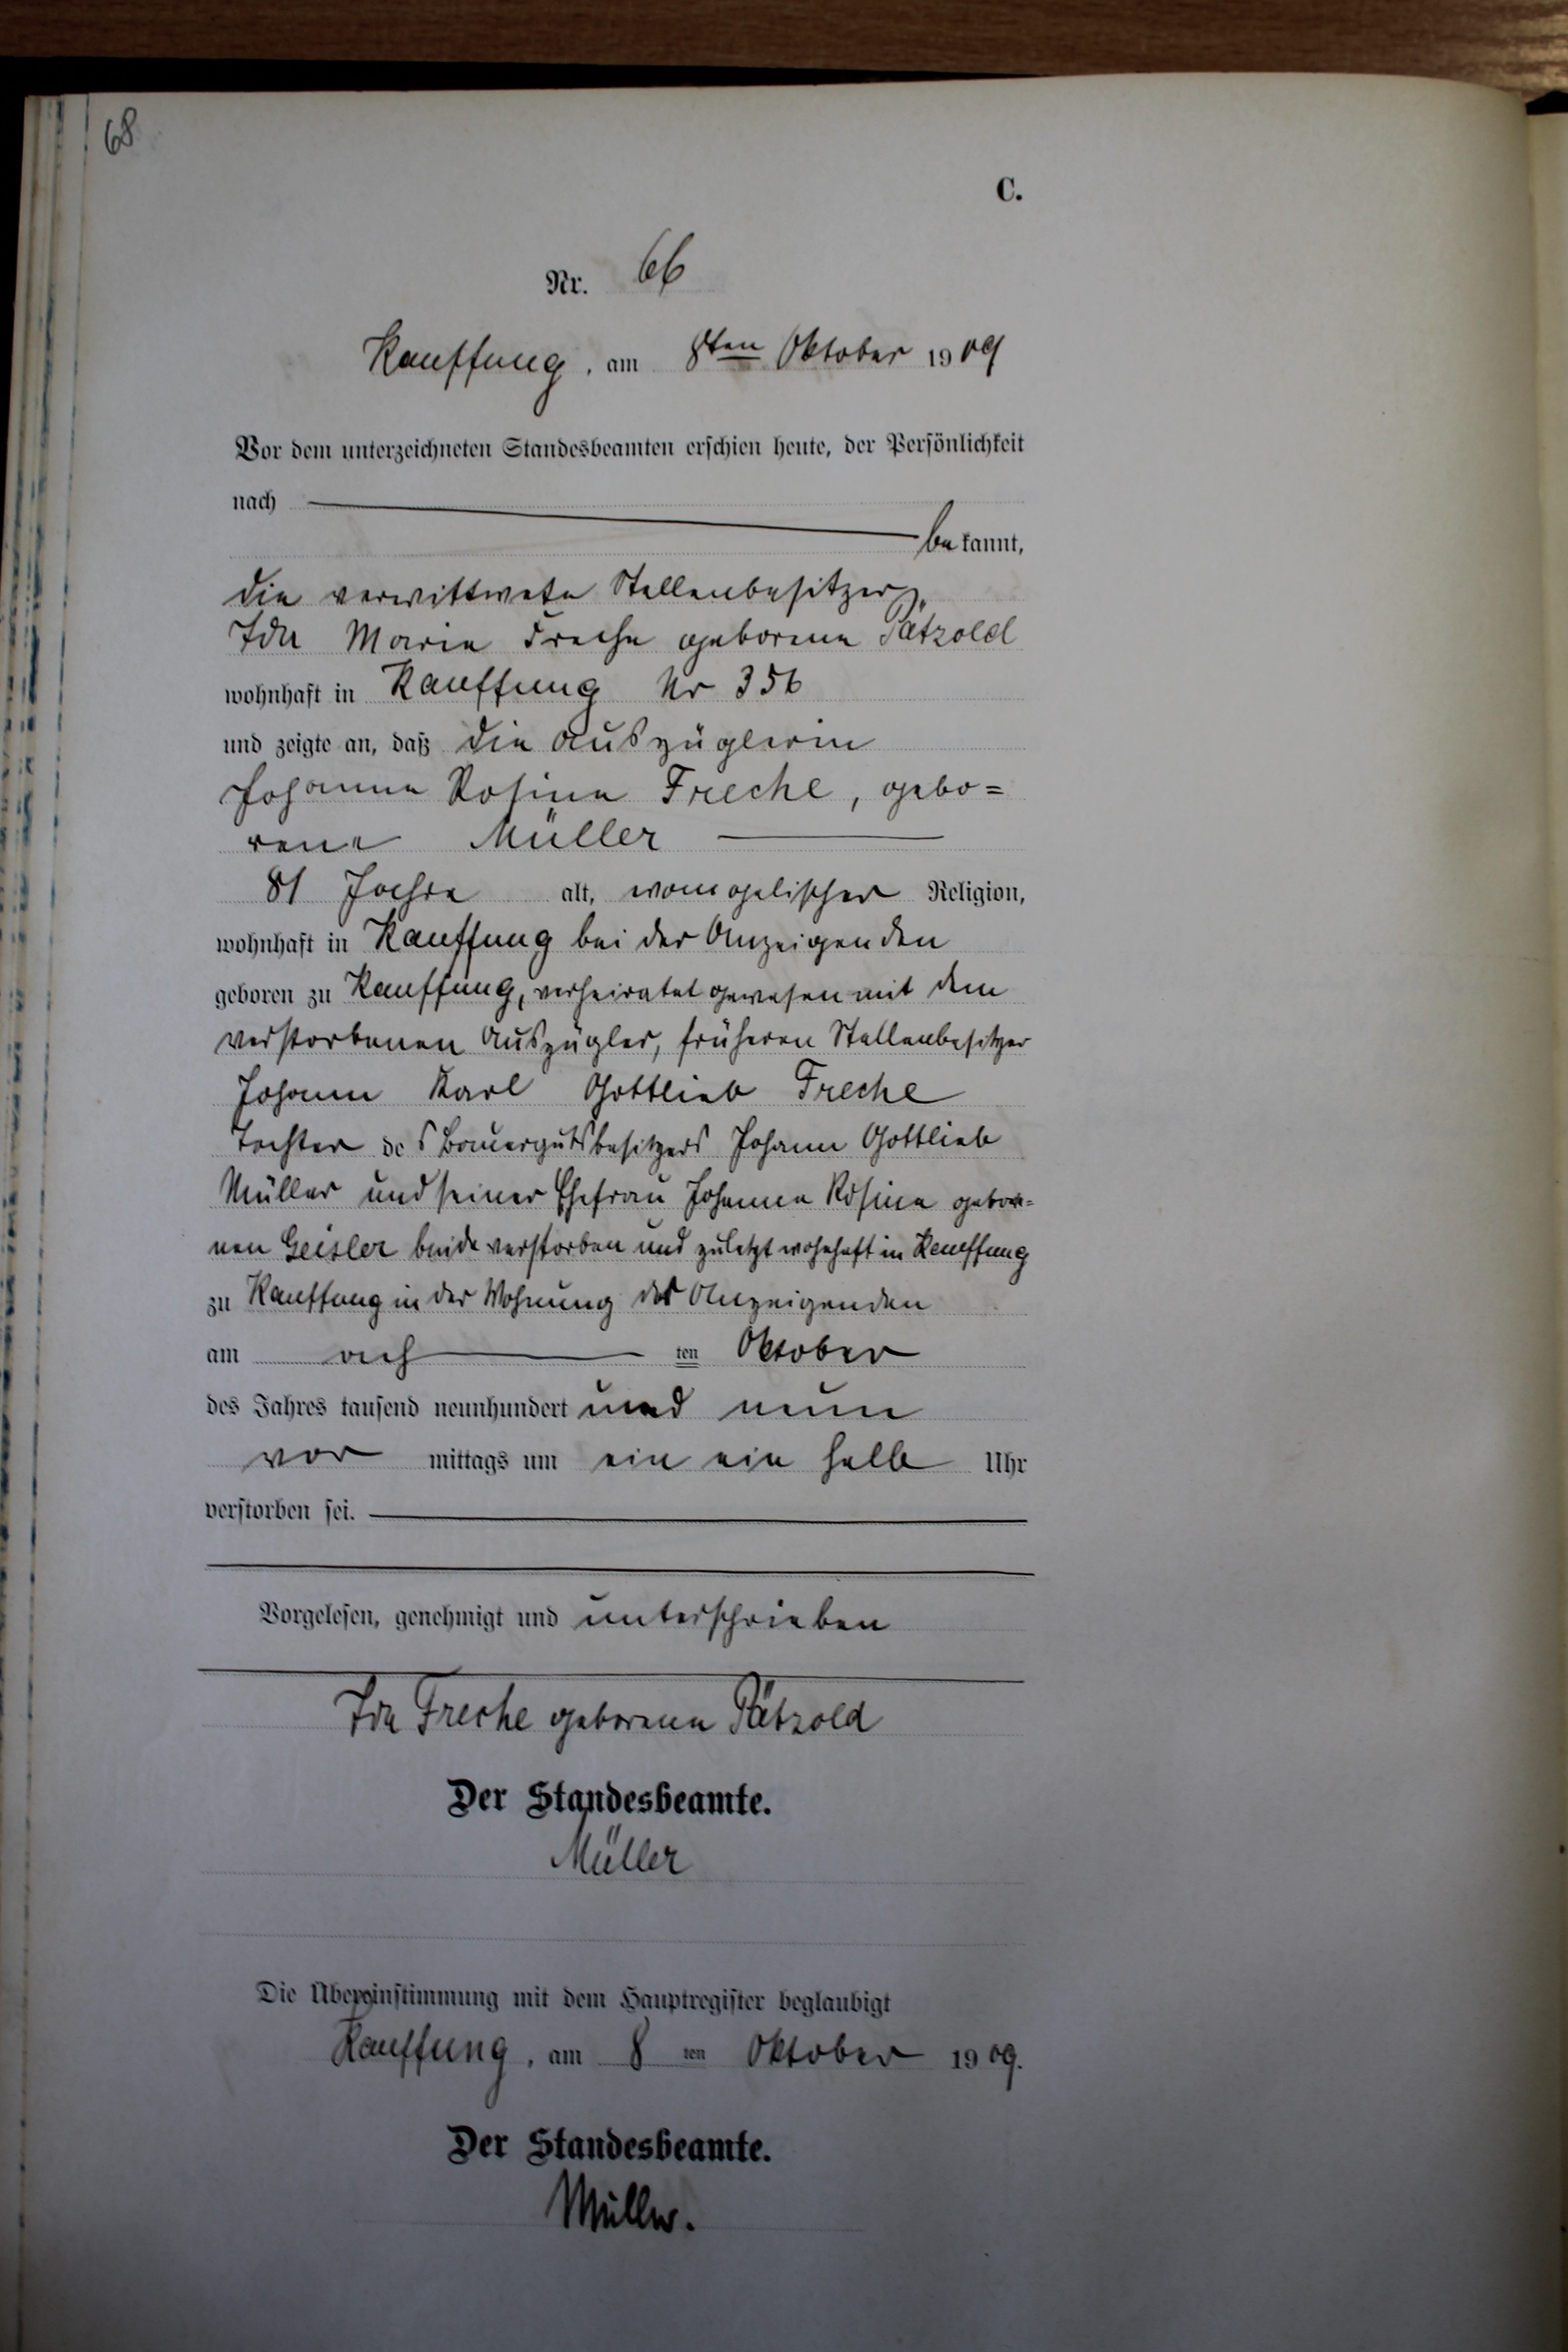 68
C.
Nr. 66
Kauffung, am 8ten Oktober 1909
Vor dem unterzeichneten Standesbeamten erschien heute, der Persönlichkeit
nach
bekannt,
die verwittwete Stellenbesitzer,
Ida Marie Freche geborene Pätzold
wohnhaft in Kauffung Nr 356
und zeigte an, daß die Auszüglerin
Johanne Rosine Freche, gebo=
rene Müller
81 Jahre alt, evangelischer Religion,
wohnhaft in Kauffung bei der Anzeigenden
geboren zu Kauffung, verheiratet gewesen mit dem
verstorbenen Auszügler, früheren Stellenbesitzer
Johann Karl Gottlieb Freche
Tochter des Bauergutsbesitzers Johann Gottlieb
Müller und seiner Ehefrau Johanne Rosine gebor=
nen Geisler beide verstorben und zuletzt wohnhaft in Kauffung
zu Kauffung in der Wohnung der Anzeigenden
am ach ten Oktober
des Jahres tausend neunhundert und neun
vor mittags um ein ein halb Uhr
verstorben sei.
Vorgelesen, genehmigt und unterschrieben
Ida Freche geborene Pätzold
Der Standesbeamte.
Müller
Die Übereinstimmung mit dem Hauptregister beglaubigt
Kauffung, am 8 ten Oktober 1909.
Der Standesbeamte.
Müller.